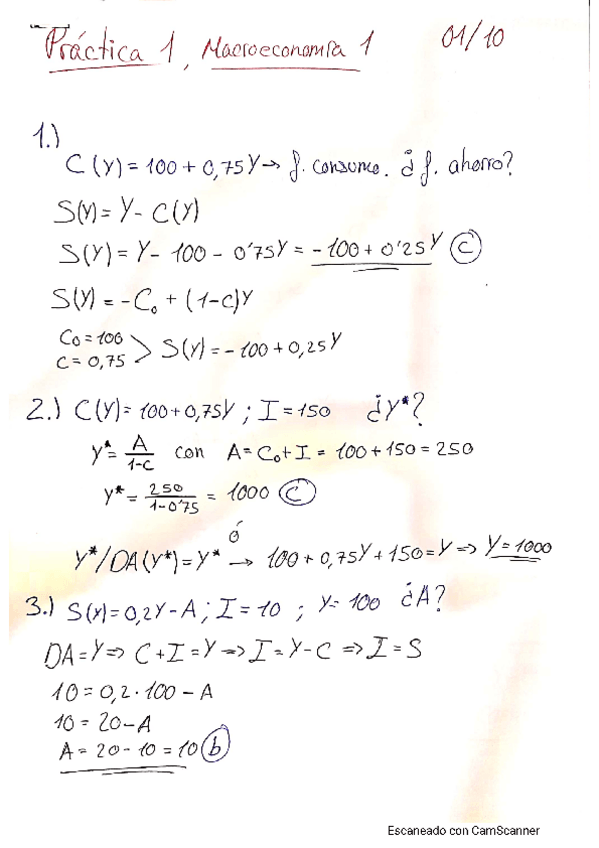 Práctica 1, Macroeconomía 1 01/10
1.)
C(Y) = 100 + 0,75Y → f. consumo. ¿f. ahorro?
S(Y) = Y - C(Y)
S(Y) = Y - 100 - 0'75Y = -100 + 0'25Y (c)
S(Y) = -C₀ + (1-c)Y
C₀ = 100
c = 0,75 > S(Y) = -100 + 0,25Y
2.) C(Y) = 100 + 0,75Y ; I = 150 ¿Y*?
Y* = A/1-c con A = C₀ + I = 100 + 150 = 250
Y* = 250/1-0'75 = 1000 (c)
ó
Y*/DA(Y*) = Y* → 100 + 0,75Y + 150 = Y ⇒ Y = 1000
3.) S(Y) = 0,2Y - A ; I = 10 ; Y = 100 ¿A?
DA = Y ⇒ C + I = Y ⇒ I = Y - C ⇒ I = S
10 = 0,2 · 100 - A
10 = 20 - A
A = 20 - 10 = 10 (b)
Escaneado con CamScanner